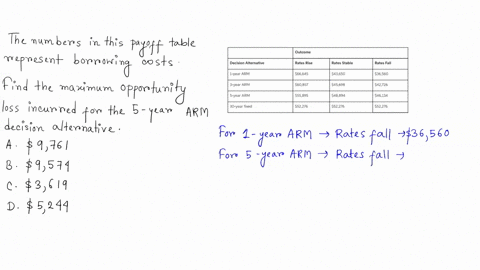 The numbers in this payoff table
represent borrowing costs.
Find the maximum opportunity
loss incurred for the 5-year ARM
decision alternative.
A. $9,761
B. $9,574
C. $3,619
D. $5,244
Outcome
Decision Alternative Rates Rise Rates Stable Rates Fall
1-year ARM
3-year ARM
5-year ARM
30-year fixed $52,276 $52,276 $52,276
For 1-year ARM → Rates fall → $36,560
For 5-year ARM → Rates fall →